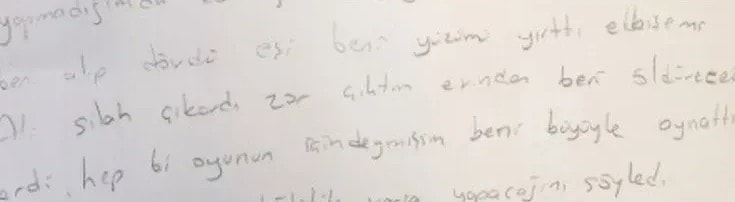 yapmadığımdan
beni alıp dövdü eşi beni yüzümü yırttı elbisemi
silah çıkardı zor çıktım evinden beni öldürecek
hep bi oyunun içindeymişim beni böyüyle oynattı
yapacağını söyledi